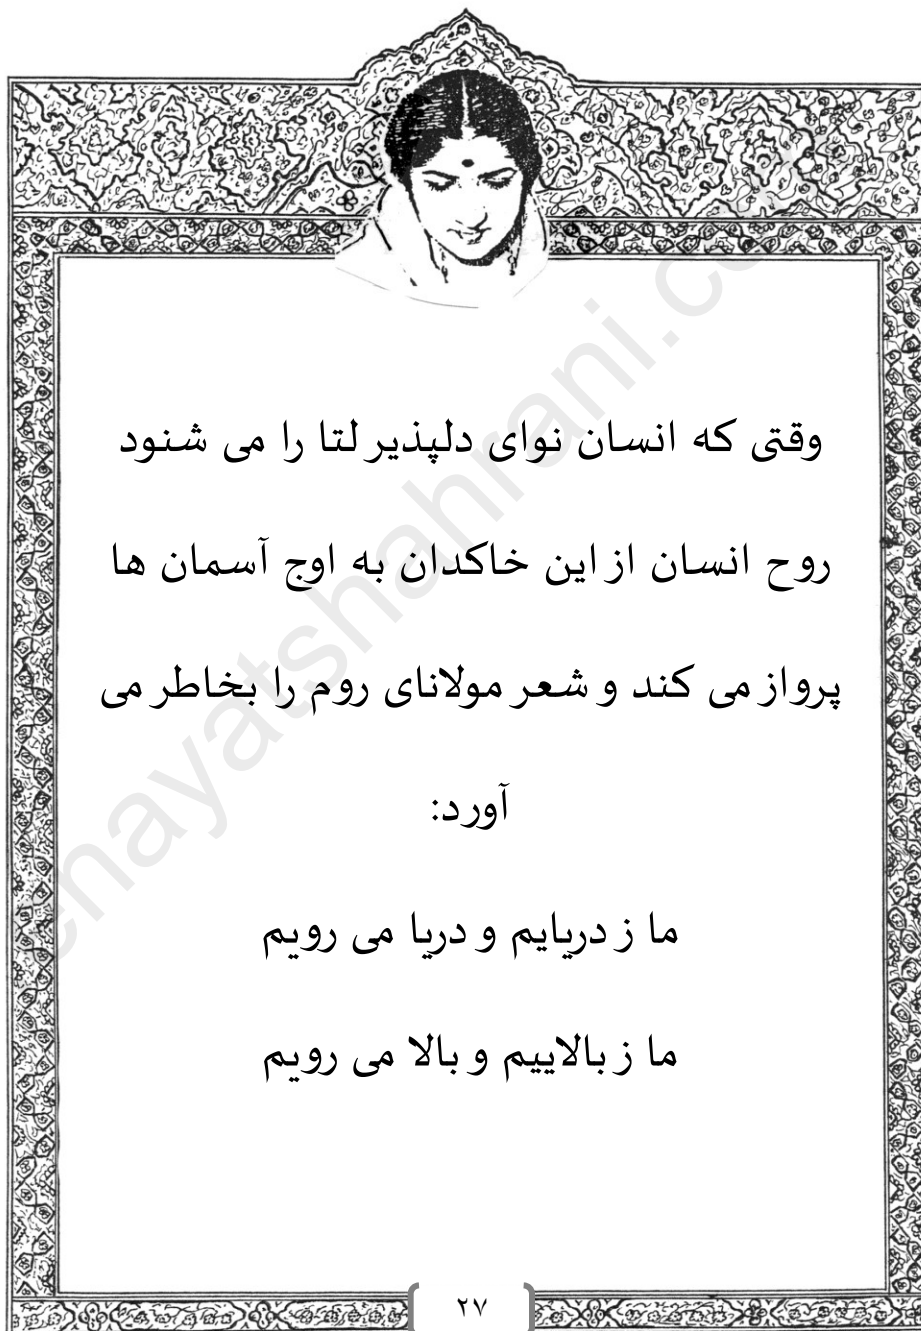 وقتی که انسان نوای دلپذیر لتا را می شنود
روح انسان از این خاکدان به اوج آسمان ها
پرواز می کند و شعر مولانای روم را بخاطر می
آورد:
ما ز دریایم و دریا می رویم
ما ز بالاییم و بالا می رویم
۲۷
enayatshahrani.com